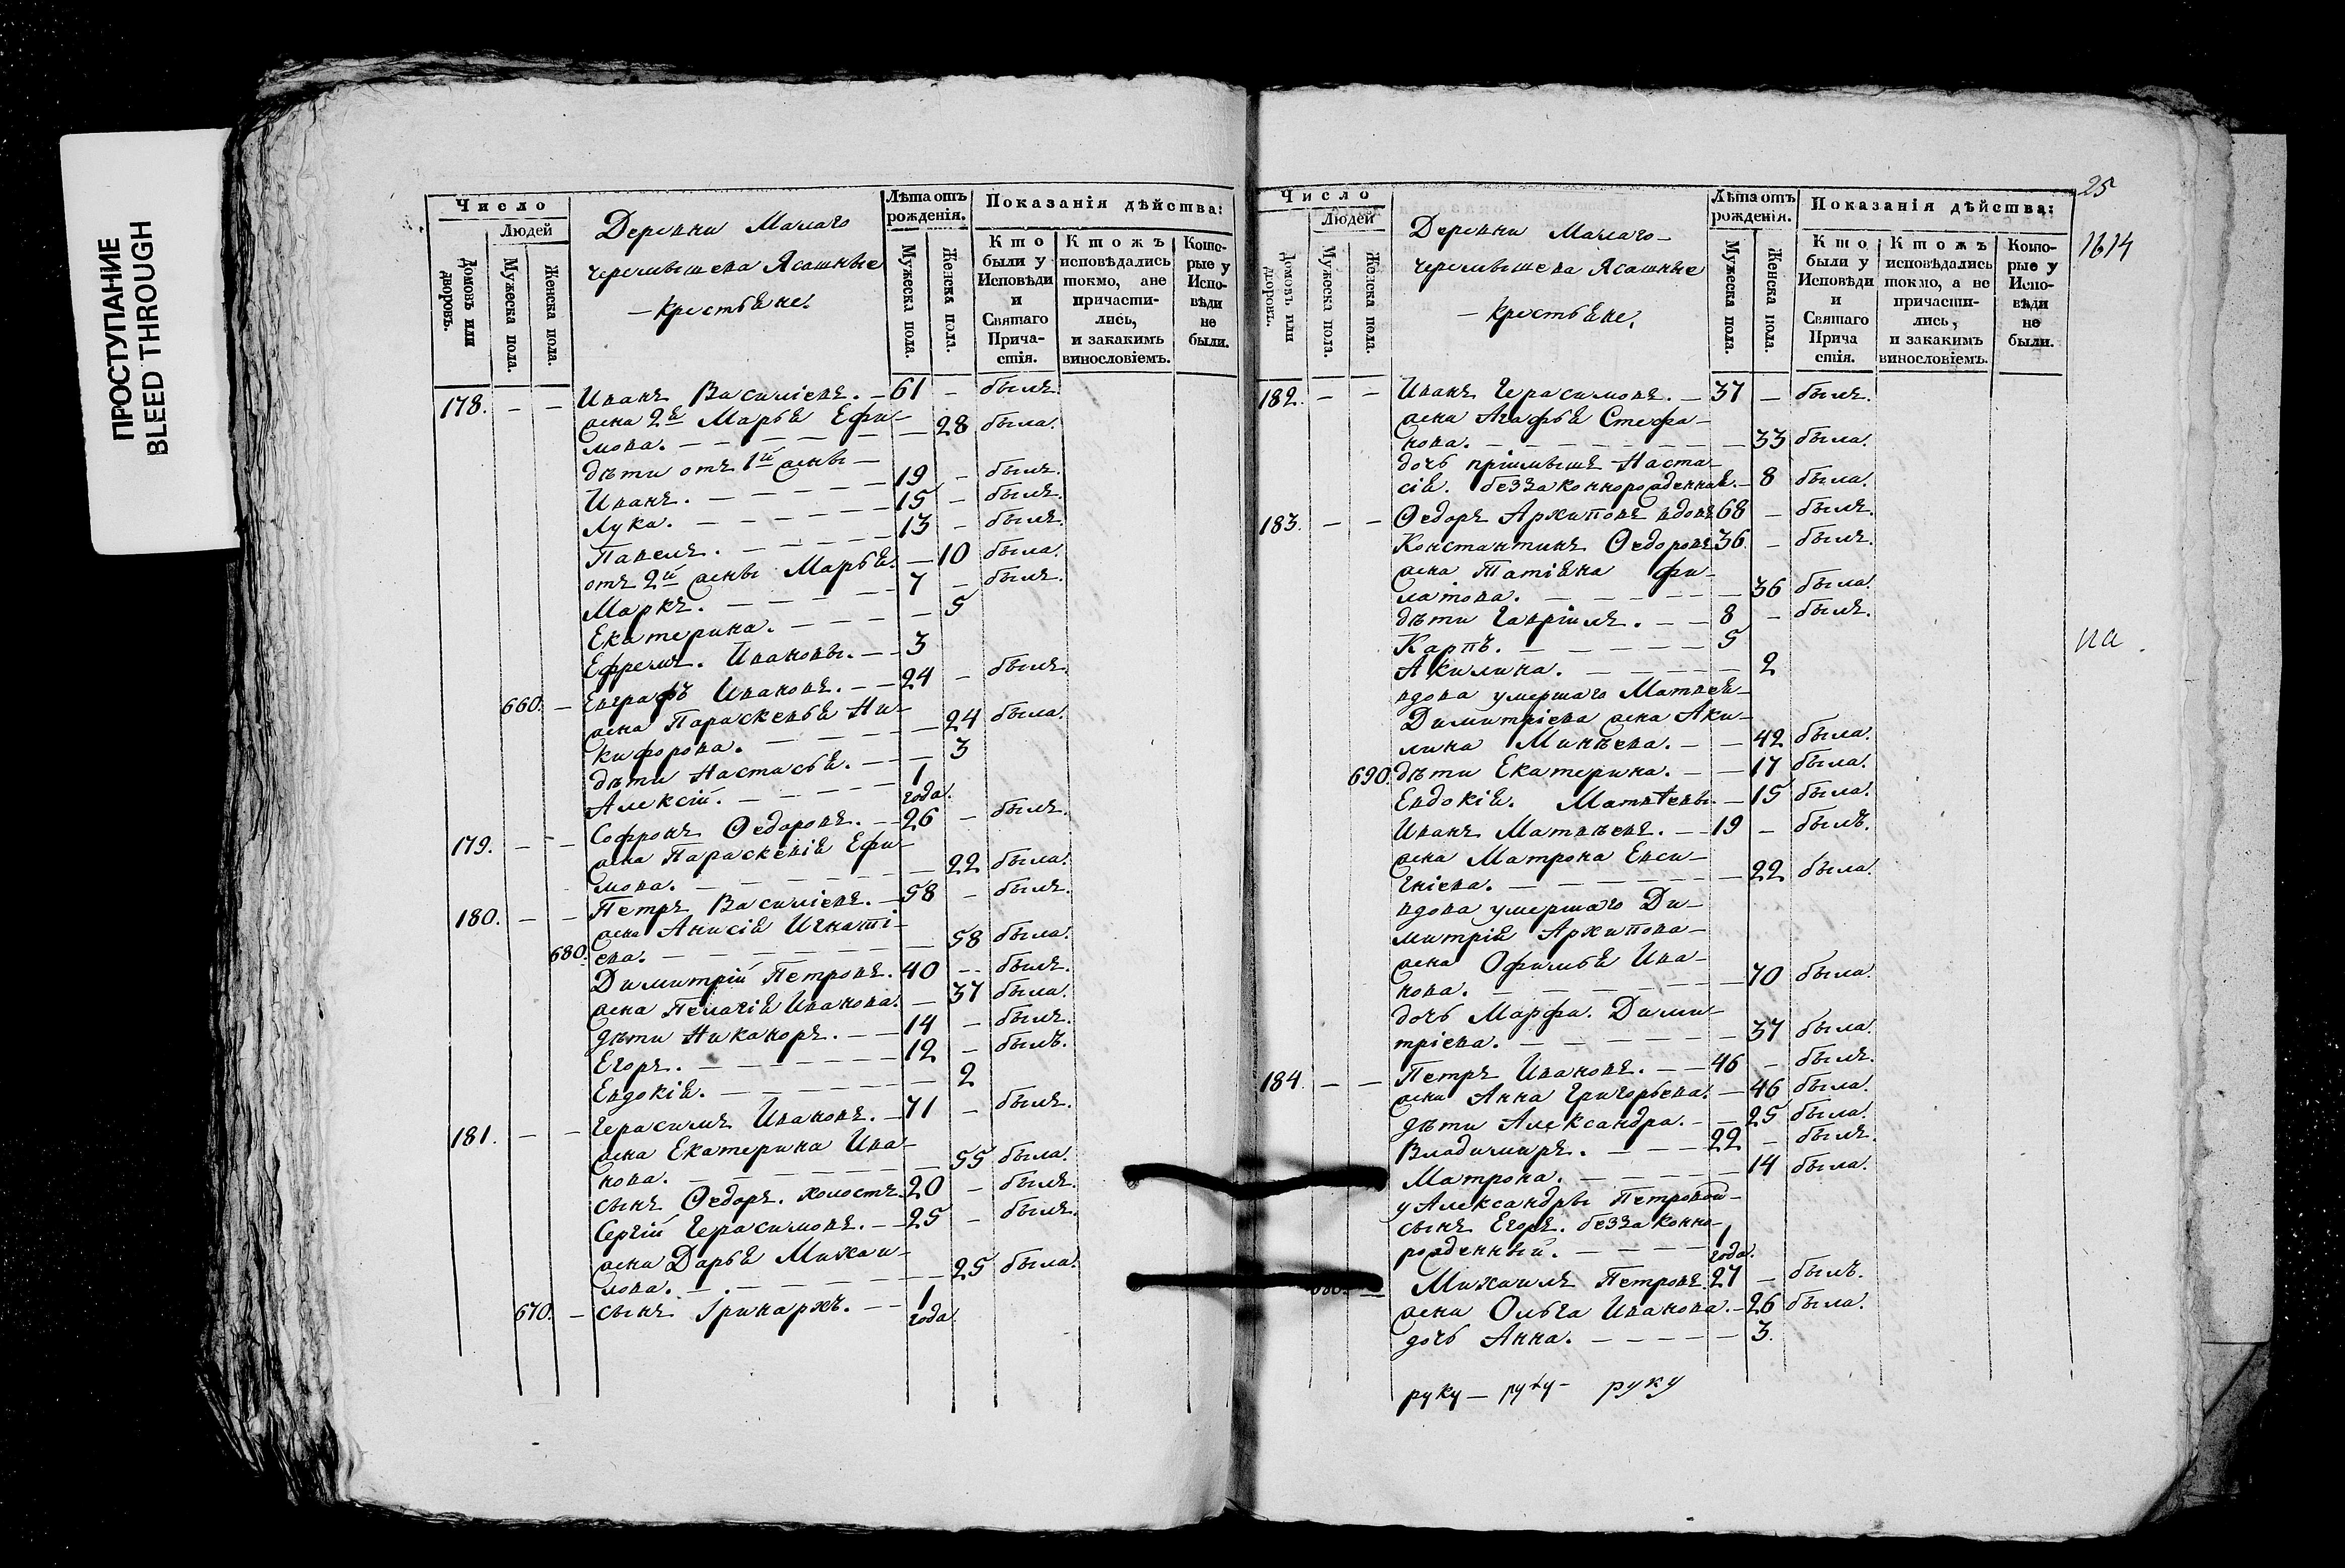 ПРОСТУПАНИЕ
BLEED THROUGH
Число
Людей
Домовъ или дворовъ.
Мужеска пола.
Женска пола.
Деревни Малаго
черемышева Ясашные
— крестьяне.
Лѣта отъ рожденія.
Мужеска пола.
Женска пола.
Показанія дѣйства:
Кто были у Исповѣди и Святаго Причастія.
Ктожъ исповѣдались токмо, ане причастились, и закакимъ винословіемъ.
Которые у Исповѣди не были.
178. – – Иванъ Василіевъ. – 61 – былъ.
жена 2я Марья Ефи–
мова. – – – – – – 28 была.
дѣти отъ 1й жены –
Иванъ. – – – – – 19 – былъ.
Лука. – – – – – 15 – былъ.
Павелъ. – – – – – 13 – былъ.
отъ 2й жены Марья. – 10 была.
Маркъ. – – – – – 7 – былъ.
Екатерина. – – – – 5
Ефремъ. Ивановы. – – 3
660. – Евграфъ Ивановъ. – – 24 – былъ.
жена Параскевья Ни–
кифорова. – – – – – 24 была.
дѣти Настасья. – – – 3
Алексій. – – – – – 1 года.
179. – – Софронъ Ѳедоровъ. – – 26 – былъ.
жена Параскевія Ефи–
мова. – – – – – – 22 была.
180. – – Петръ Василіевъ. – 58 – былъ.
жена Анисія Игнаті–
680. ева. – – – – – – 58 была.
Димитрій Петровъ. 40 – былъ.
жена Пелагія Иванова. – 37 была.
дѣти Никаноръ. – – 14 – былъ.
Егоръ. – – – – – 12 – былъ.
Евдокія. – – – – – 2
181. – – Герасимъ Ивановъ. – 71 – былъ.
жена Екатерина Ива–
нова. – – – – – – 55 была.
сынъ Ѳедоръ. холостъ. 20 – былъ.
Сергій Герасимовъ. – – 25 – былъ.
жена Дарья Михаи–
лова. – – – – – – 25 была.
670. – сынъ Гринархъ. – – 1 года
25
1614
Число
Людей
Домовъ или дворовъ.
Мужеска пола.
Женска пола.
Деревни Малаго –
черемышева Ясашные
– крестьяне.
Лѣта отъ рожденія.
Мужеска пола.
Женска пола.
Показанія дѣйства:
Кто были у Исповѣди и Святаго Прича стія.
Ктожъ исповѣдались токмо, а не причастились, и закакимъ винословіемъ.
Которые у Исповѣди не были.
182. – – Иванъ Герасимовъ. – 37 – былъ.
жена Агафья Стефа–
нова. – – – – – – 33 была.
дочь пріимышъ Наста–
сія. беззаконнорожденная. – 8 была.
183. – – Ѳедоръ Архиповъ вдовъ 68 – былъ.
Константинъ Ѳедоровъ 36 – былъ.
жена Татіяна фи–
латова. – – – – – 36 была.
дѣти Гавріилъ. – – 8 – былъ.
Карпъ. – – – – – 5
Акилина. – – – – – 2
вдова умершаго Матвѣя –
Димитріева жена Аки–
лина Минѣева. – – 42 была.
690. дѣти Екатерина. – – 17 была.
Евдокія. Матвѣевы. – 15 была.
Иванъ Матвѣевъ. – – 19 – былъ.
жена Матрона Евси–
гніева. – – – – – – 22 была.
вдова умершаго Ди–
митрія Архипова –
жена Офимья Ива–
нова. – – – – – – 70 была.
дочь Марфа. Дими–
тріева. – – – – – – 37 была.
184. – – Петръ Ивановъ. – – 46 – былъ.
жена Анна Григорьева. – 46 была.
дѣти Александра. – – 25 была.
Владимиръ. – – – – 22 – былъ.
Матрона. – – – – – 14 была.
у Александры Петровой –
сынъ Егоръ. беззаконно–
рожденный. – – – – 1 года.
680. – Михаилъ Петровъ. 27 – былъ.
жена Ольга Иванова. – 26 была.
дочь Анна. – – – – – 3.
руку – руку – руку